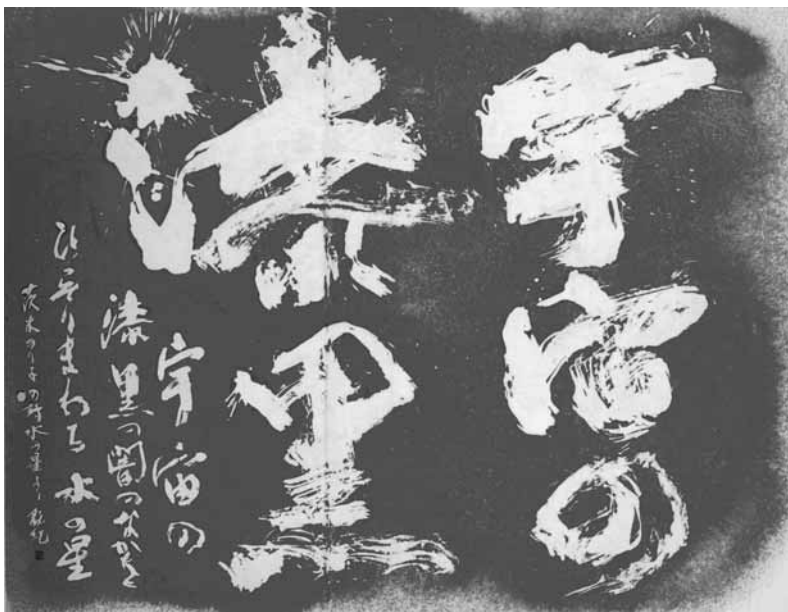 宇宙の
漆黒
宇宙の
漆黒の闇のなかを
ひっそりまわる水の星
茨木のり子の詩水の星より